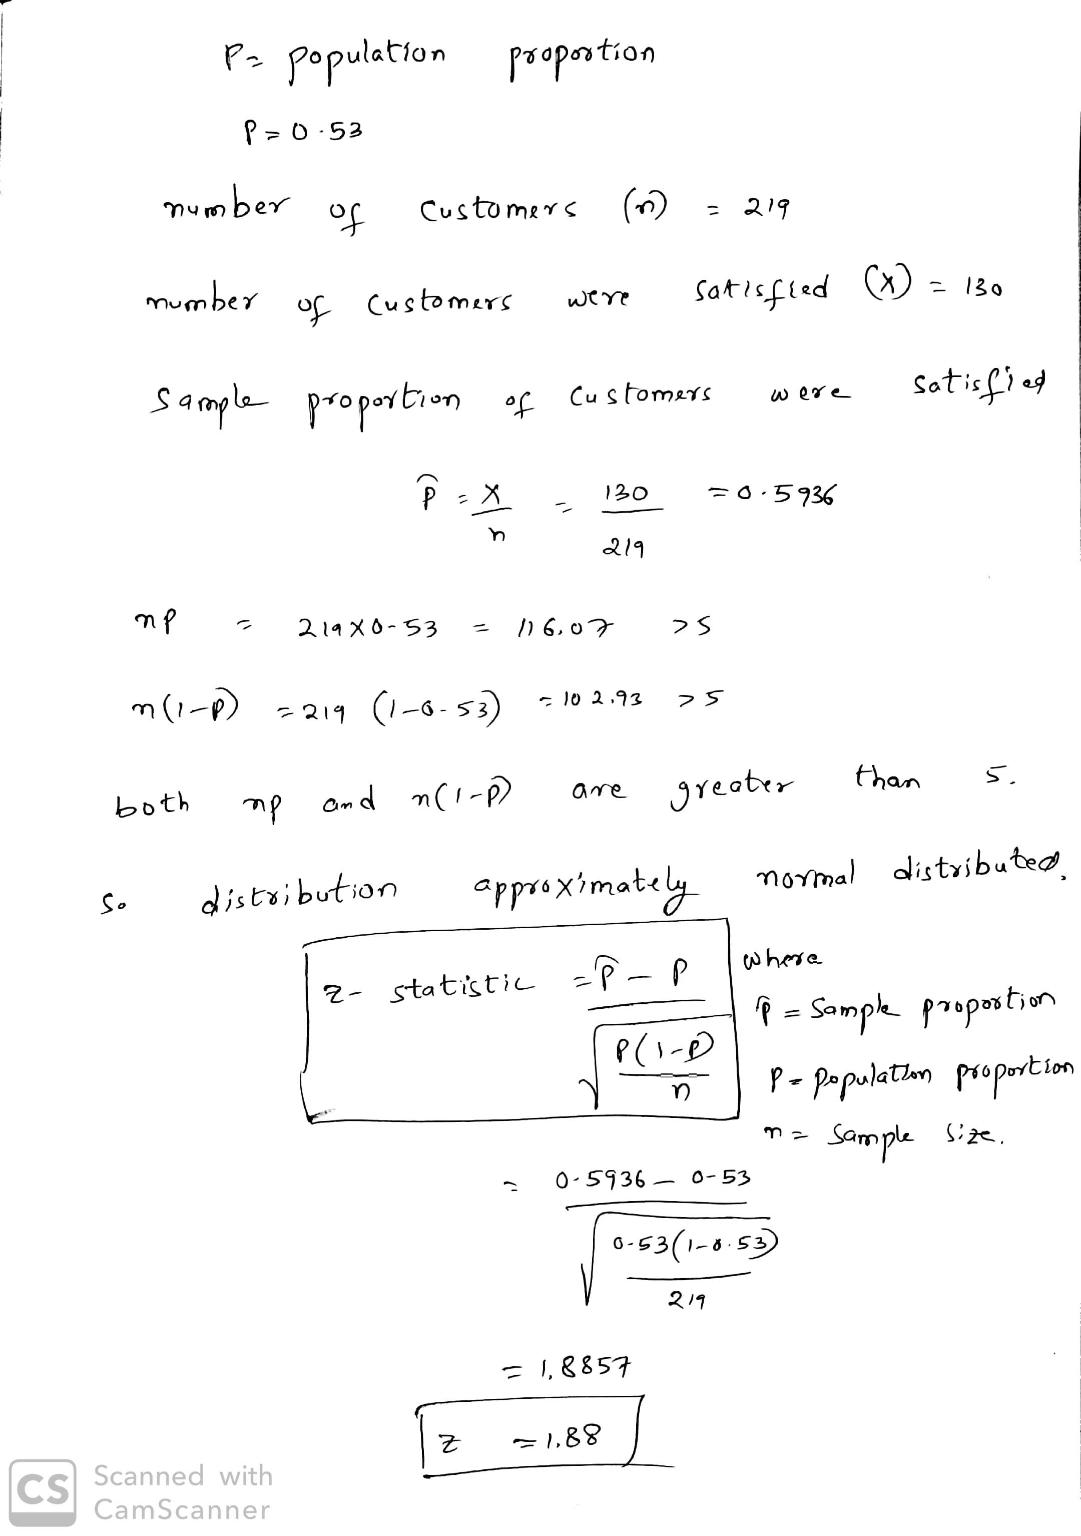 P = population proportion
P = 0.53
number of customers (n) = 219
number of customers were satisfied (x) = 130
Sample proportion of customers were satisfied
p̂ = x/n = 130/219 = 0.5936
np = 219 x 0.53 = 116.07 > 5
n(1-p) = 219 (1-0.53) = 102.93 > 5
both np and n(1-p) are greater than 5.
So distribution approximately normal distributed.
z- statistic = p̂ - p / √(p(1-p)/n)
where
p̂ = sample proportion
P = population proportion
n = sample size.
= 0.5936 - 0.53 / √(0.53(1-0.53)/219)
= 1.8857
z = 1.88
CS Scanned with
CamScanner